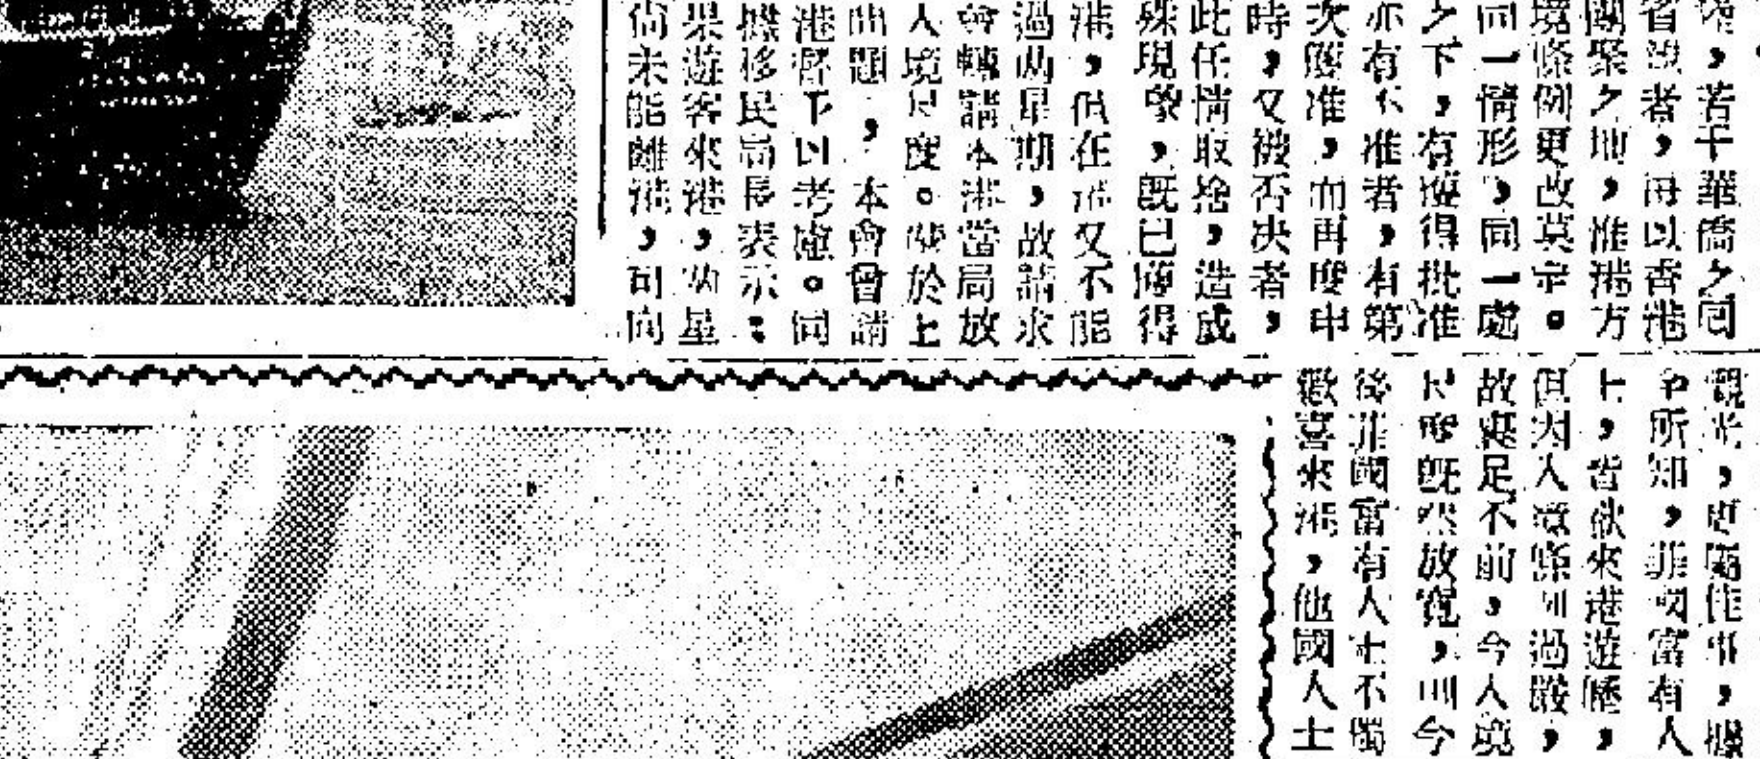 ，若干華僑之同
省親者，再以香港
團聚之地，准港方
境條例更改莫定。
同一情形，同一處
之下，有獲得批准
亦有不准者，有第
次獲准，而再度申
時，又被否决者，
此任情取捨，造成
殊現象，既已獲得
港，但在港又不能
過兩星期，故請求
會轉請本港當局放
入境尺度。關於上
問題，本會曾請
港督予以考慮。同
據移民局長表示：
果遊客來港，如星
尚未能離港，可向
觀光，更屬佳事，據
所知，菲國富有人
士，皆欲來港遊歷，
但因入境條例過嚴，
故裹足不前，今入境
尺度既然放寬，則今
後菲國富有人士不獨
歡喜來港，他國人士